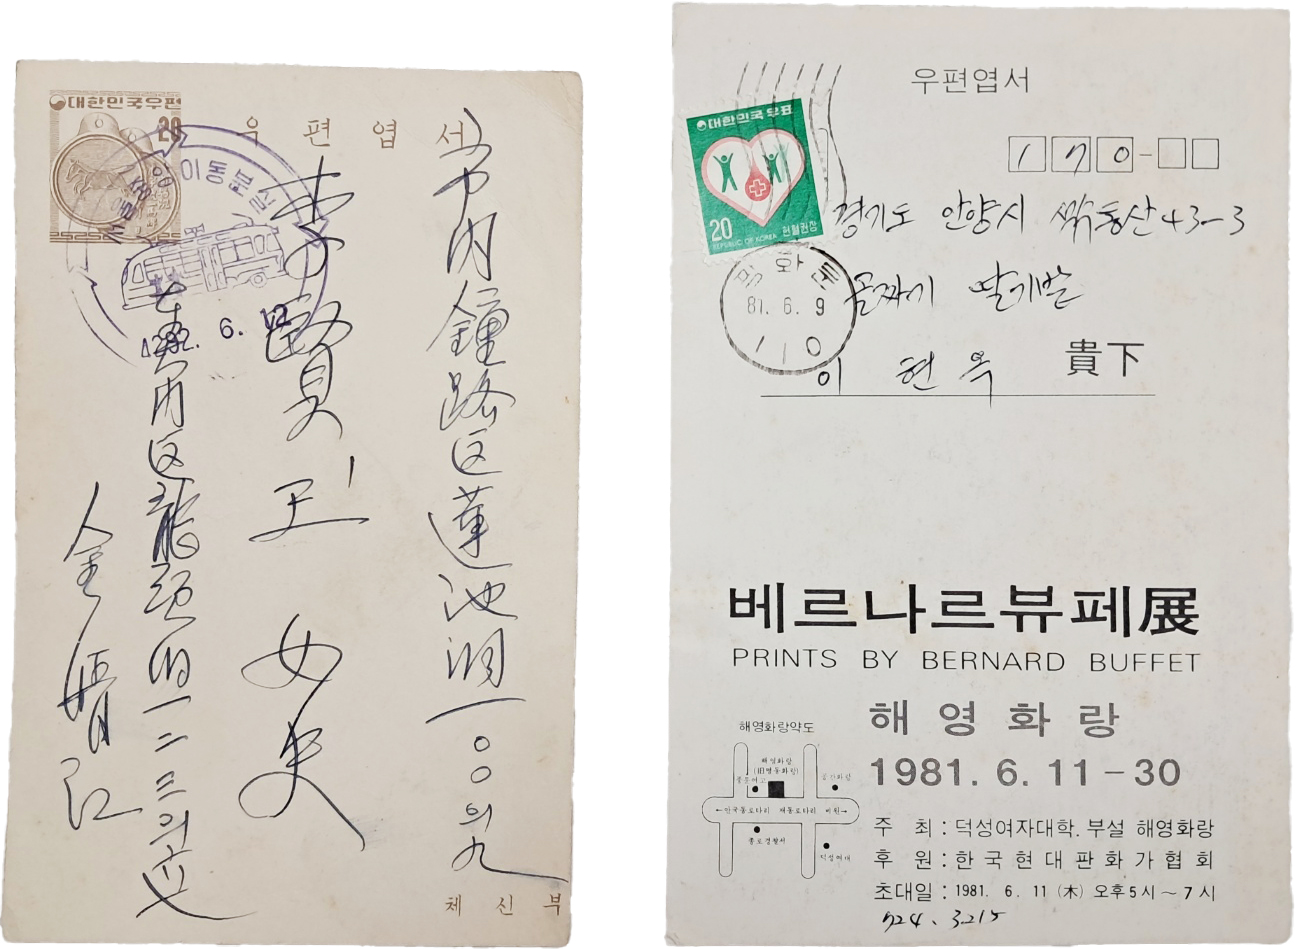 대한민국우편
20
우 편 엽 서
이동
6.
市内鐘路区蓮池洞一〇〇의九
李賢玉 女史
区龍頭洞一二三의
金晴江
체 신 부
우편엽서
대한민국우표
20
헌혈권장
REPUBLIC OF KOREA
170-
경기도 안양시 43-3
골짜기 딸기밭
이 현 옥 貴下
광화문
81. 6. 9
110
베르나르뷔페展
PRINTS BY BERNARD BUFFET
해영화랑
1981. 6. 11 – 30
해영화랑약도
해영화랑
(旧명동화랑)
풍문여고
공간화랑
←안국동로타리 재동로타리 비원→
종로경찰서
덕성여대
주 최 : 덕성여자대학. 부설 해영화랑
후 원 : 한국현대판화가협회
초대일 : 1981. 6. 11 (木) 오후5시~7시
724. 3215